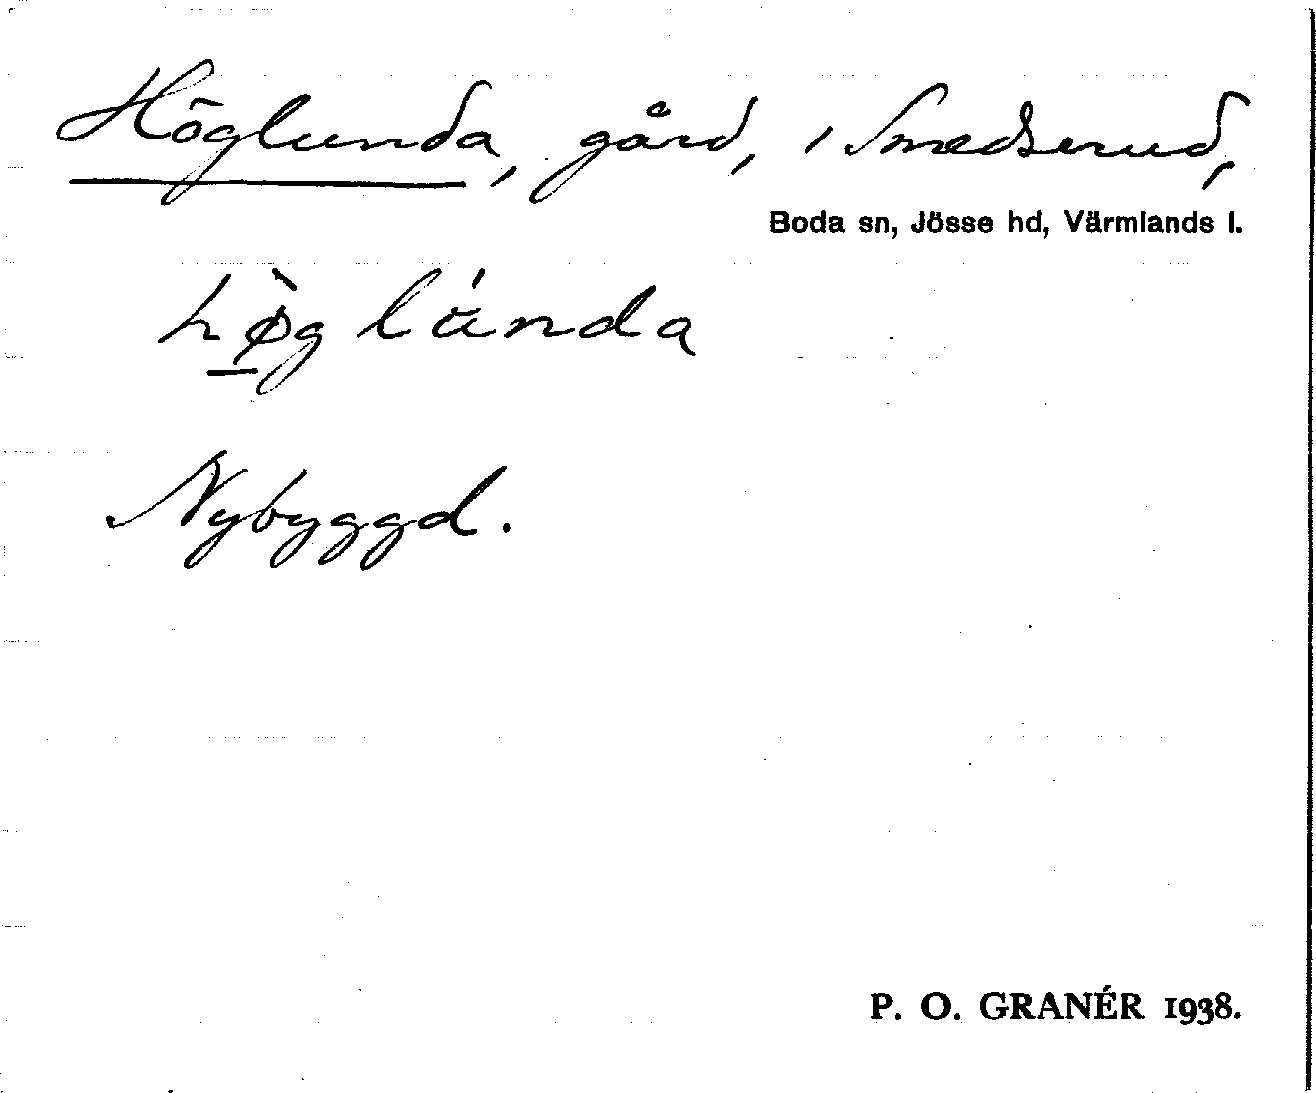 Höglunda, gård, i Smedserud,
Boda sn, Jösse hd, Värmlands l.
hø̀g lúnda
Nybyggd.
P. O. GRANÉR 1938.